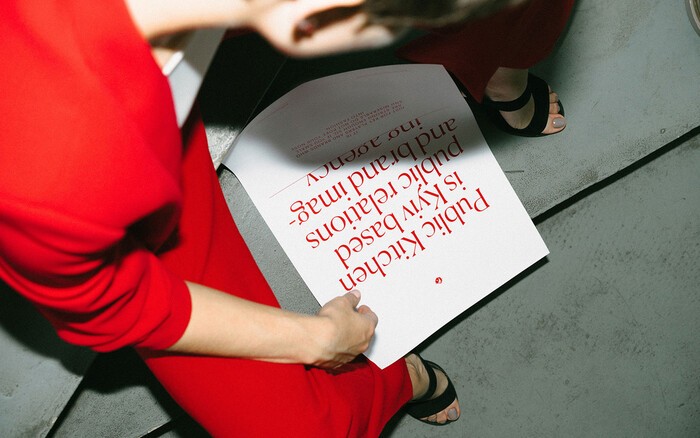 Public Kitchen
is Kyiv based
public relations
and brand imag-
ing agency